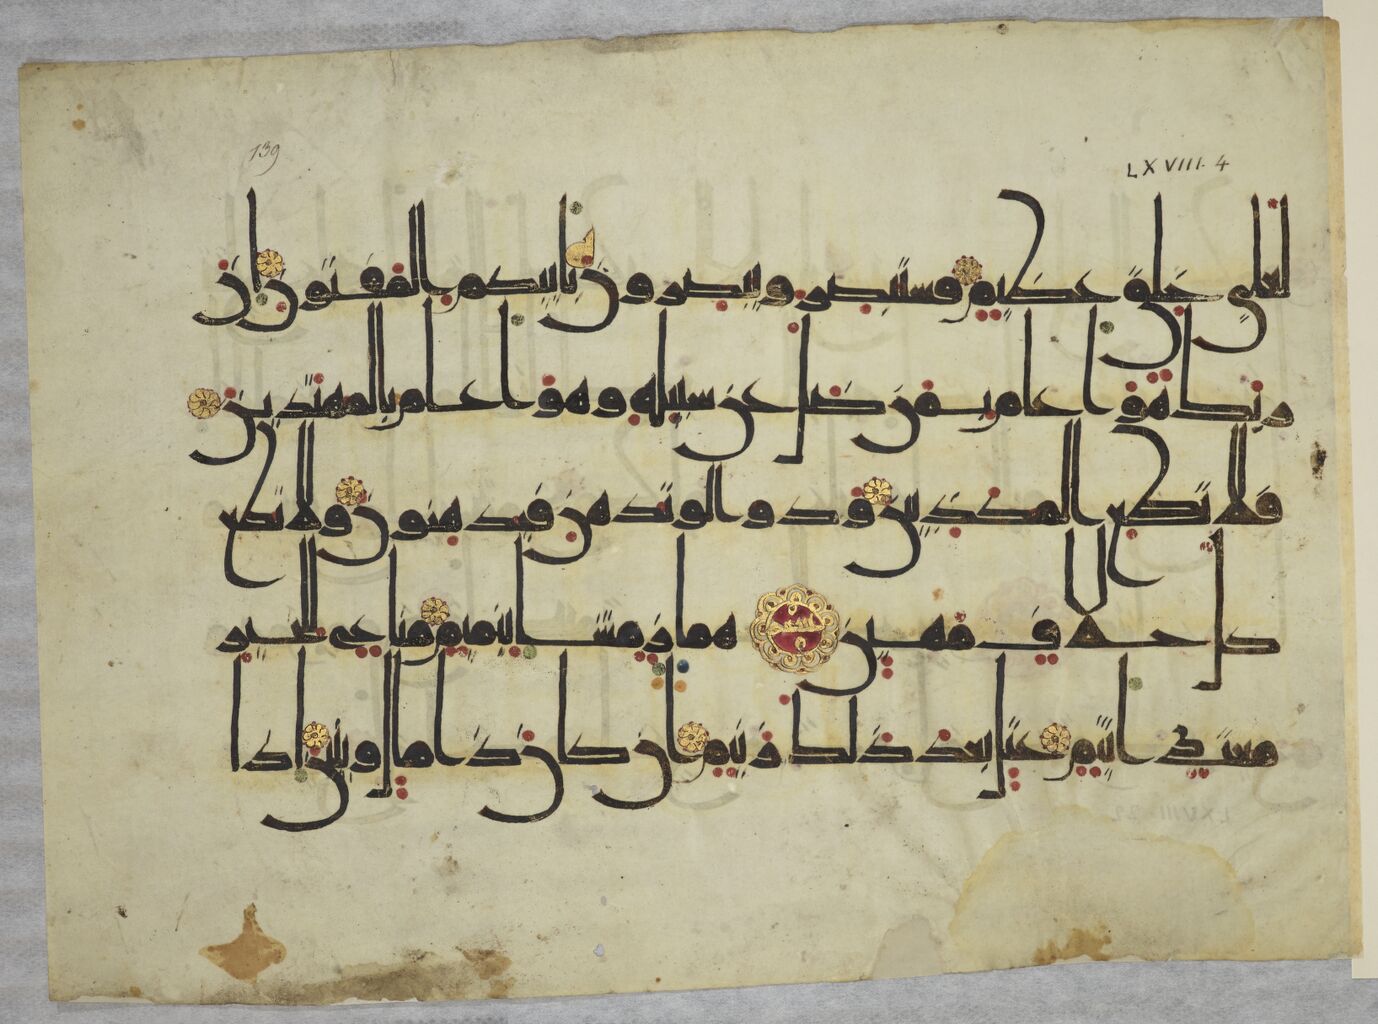 139
LXVIII. 4
لعلى خلق عظيم فستبصر ويبصرون باييكم المفتون ان
ربك هو اعلم بمن ضل عن سبيله وهو اعلم بالمهتدين
فلا تطع المكذبين ودوا لو تدهن فيدهنون ولا تطع
كل حلاف مهين هماز مشا بنميم مناع للخير
معتد اثيم عتل بعد ذلك زنيم ان كان ذا مال وبنين اذا